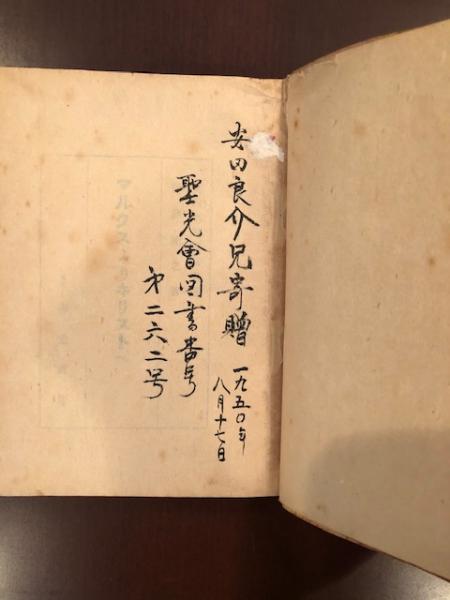 安田良介兄寄贈
一九五〇年
八月十七日
聖光會図書番号
才二六二号
マルクス
キリスト